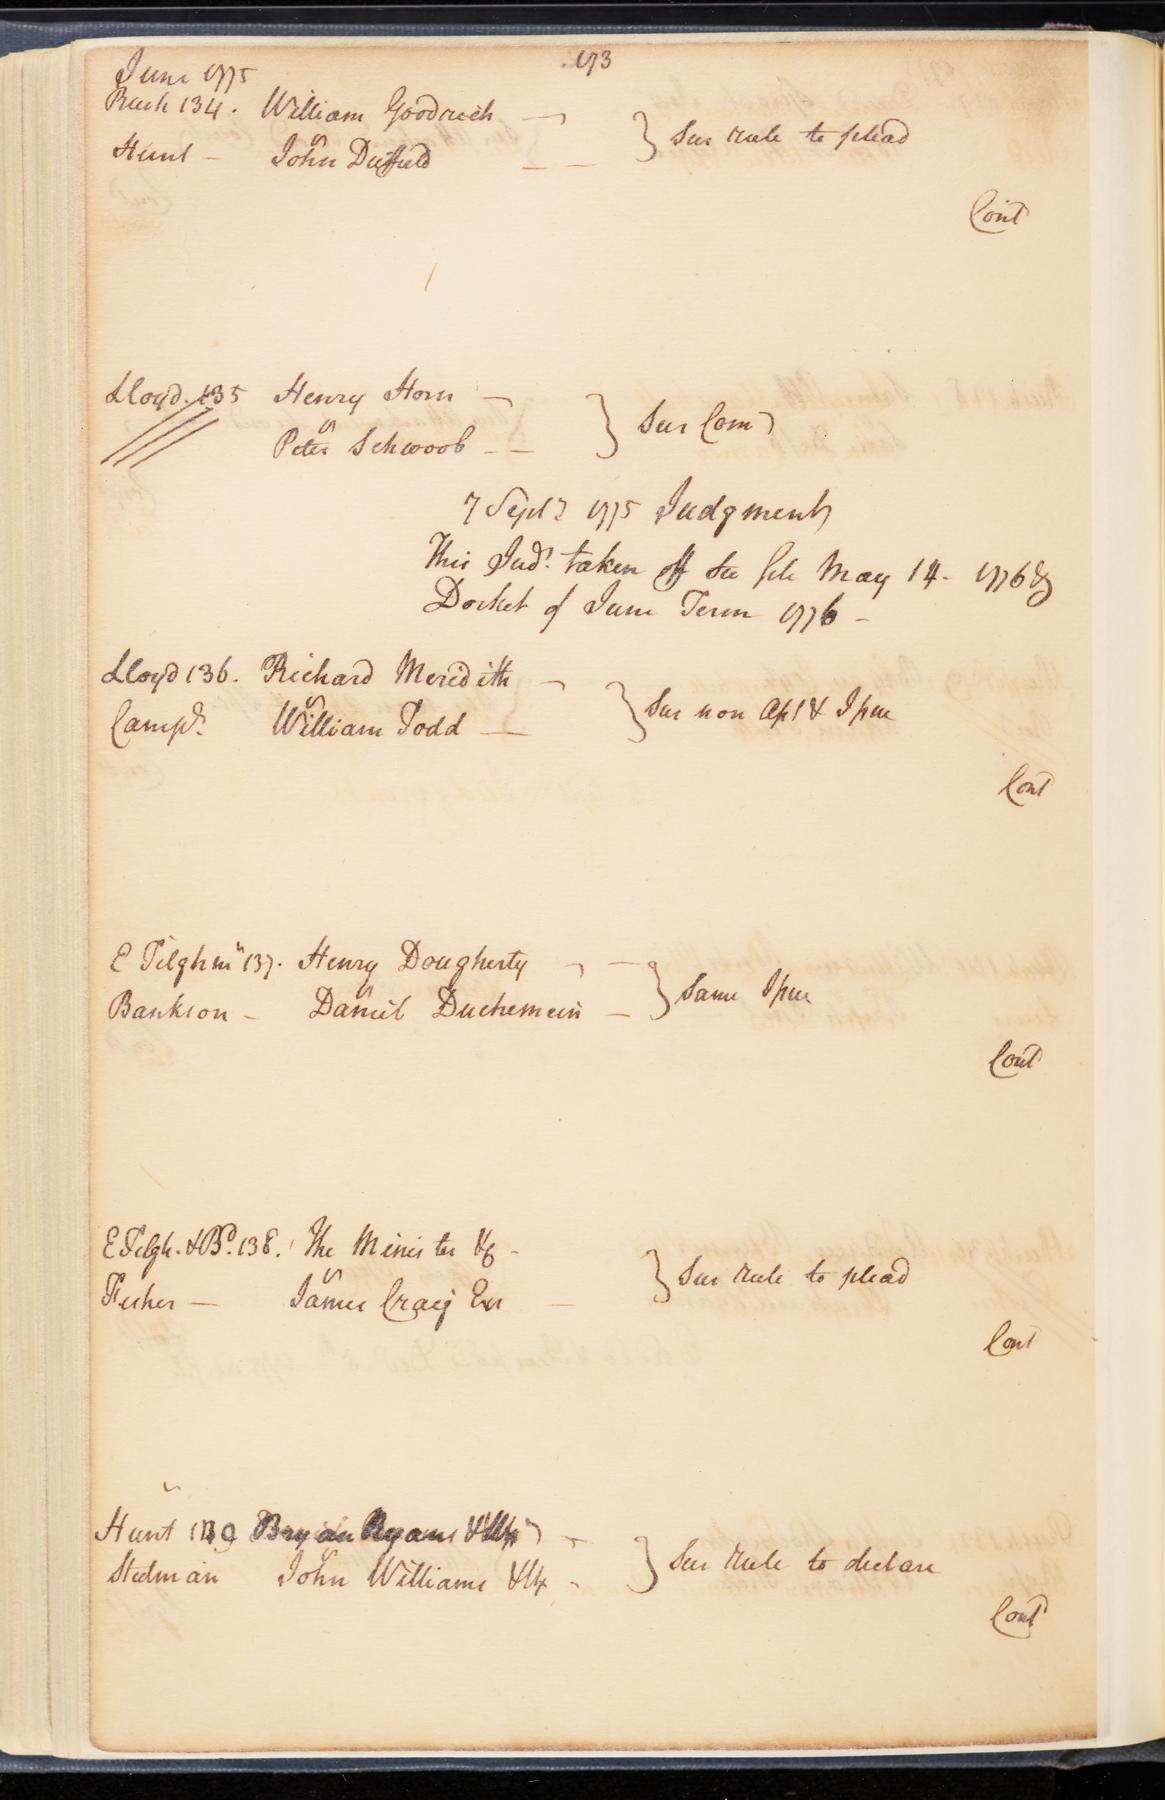 173
June 1775
Rush 134. William Goodrich } Sur rule to plead
Hunt — vs John Duffield
Cont
Lloyd. 135 Henry Horn } Sur Com
vs Peter Schwoob
7 Sept 1775 Judgment
This Judt. taken off see file May 14. 1776 &
Docket of June Term 1776 —
Lloyd 136. Richard Meredith } Sur non Apt & Ipue
Campb. vs William Todd
Cont
E Tilghmn 137. Henry Dougherty } Same Ipue
Bankson — vs Daniel Duchemein
Cont
E Tilgh. & Bd. 138. The Minister &c } Sur rule to plead
Fisher — vs James Craig Exr
Cont
Hunt 139 Bryan Ryans & Ux } Sur rule to declare
Stedman vs John Williams & Ux
Cont